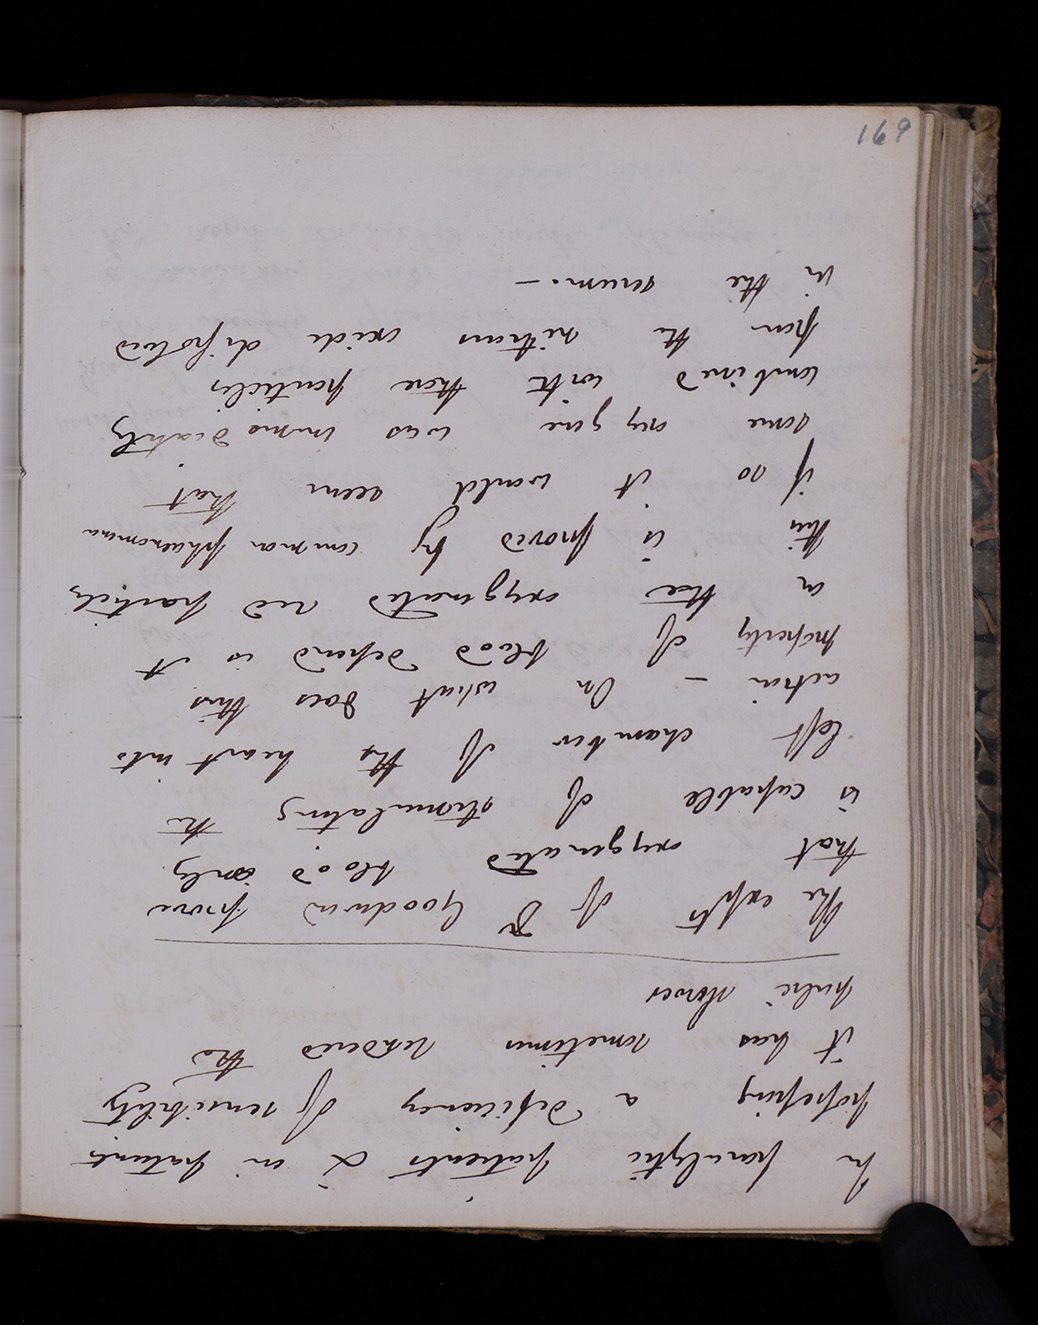 169
In paralytic patients & in patients
possessing a deficiency of sensibility
it has sometimes rendered the
pulse slower
The expts of Dr Goodwin prove
that oxygenated blood only
is capable of stimulating the
left chamber of the heart into
action – On what does this
property of blood depend is it
on the oxygenated red particles
this is proved by common phaenomena
if so it would seem that
some oxygene was immediately
combined with these particles
from the nitrous oxide dissolved
in the serum. –